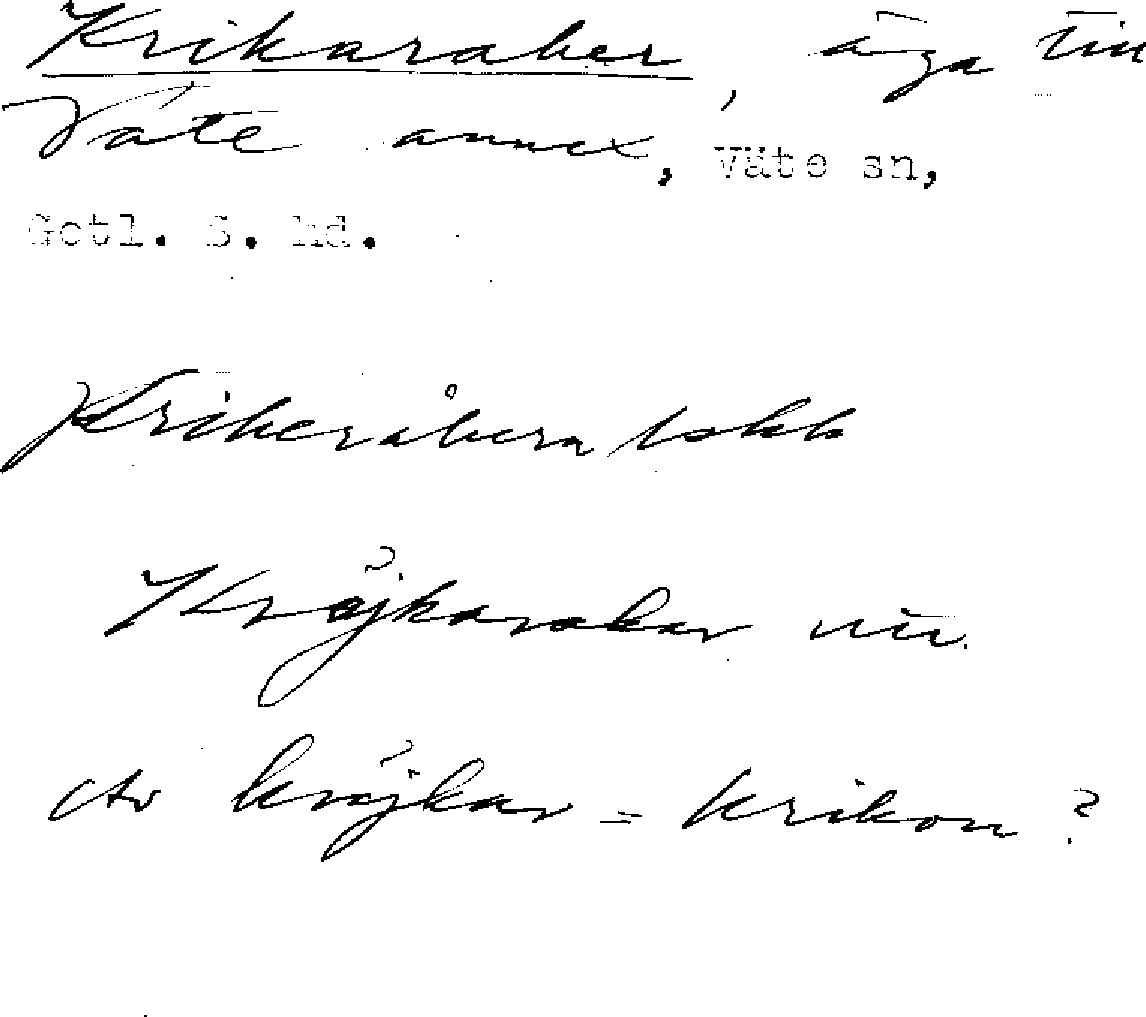 Krikaraber, äga till
Väte annex, Väte sn,
Gotl. S. hd.
Krikeråkern
Kräjkarakar
Av kräjkar = krikon?